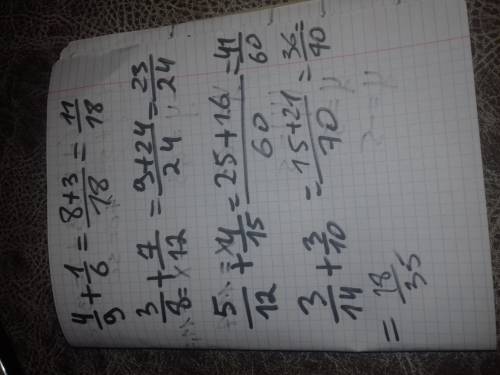 4/9 + 1/6 = 8+3/18 = 11/18
3/8 + 7/12 = 9+24/24 = 23/24
5/12 + 4/15 = 25+16/60 = 41/60
3/14 + 3/10 = 15+21/70 = 36/70 =
= 18/35